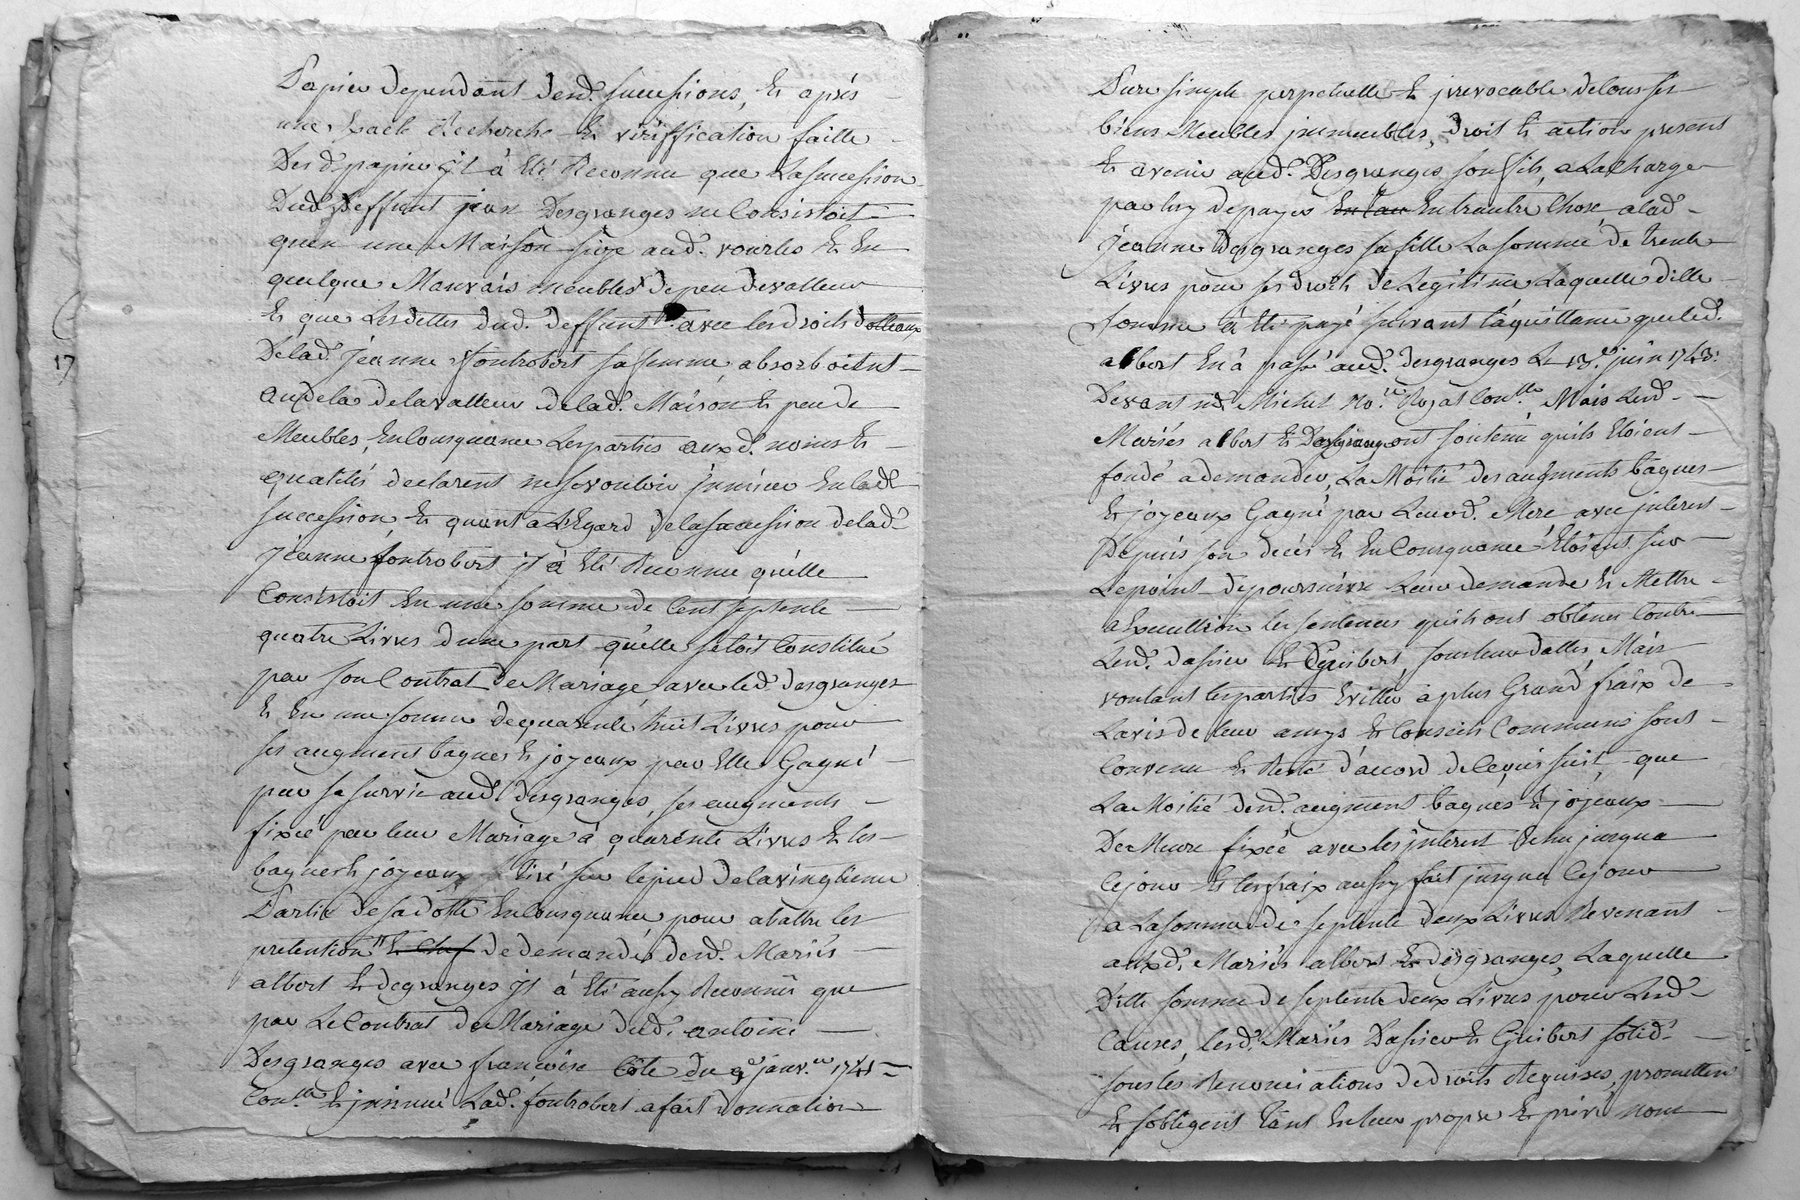 Papier dependant desd. successions, Et aprés
une Exacte Recherche Et vériffication faitte
Desd. papier jl à Eté Reconnu que La succession
Dud. Deffunt jean Desgranges ne Consistoit
quen une Maison size aud. vourles Et En
quelque Mauvais meubles de peu de valleur
Et que Les dettes dud. deffunt avec les droits dotteaux
De lad. jeanne fontrobert sa femme absorboient
audela de la valleur de lad. Maison Et peu de
Meubles, En Consquance Les parties auxd. noms Et
qualités declarent ne se vouloir jmmiser En lad.
succession Et quant a L'Egard de la succession de lad.
jeanne fontrobert jl à Eté Reconnu qu'elle
Consistoit En une somme de Cent septente
quatre Livres d'une part qu'elle s'etoit Constitué
par son Contrat de Mariage avec led. desgranges
Et En une somme de quarente huit Livres pour
ses augment bagues Et joyeaux par Elle Gagné
par sa survie aud. desgranges, ses augments
fixéé par leur Mariage à quarente Livres Et les
bagues Et joyeaux tiré sur le pied de la vingtieme
Partie de sa dotte En Consquance pour abattre les
pretention Et Chef de demandes desd. Mariés
albert Et degranges jl à Eté aussy Reconnu que
par Le Contrat de Mariage dud. antoine
Desgranges avec francoise Côte du 9e janv.er 1741
Con.llé Et jnsinué Lad. fontrobert a fait donnation
17
Pure simple perpetuelle Et jrrevocable de tous ses
biens Meubles jmmeubles, droit Et action present
Et avenir aud. Desgranges son fils, a La Charge
par luy de payer En tau Entreautre Chose, a lad.
jeanne desgranges sa fille La somme de trente
Livres pour ses droits de Legitime Laquelle ditte
somme à Eté payé suivant la quittance que led.
albert En à passé aud. desgranges Le 13e juin 1743
Devant me Michel No.re Royal Con.llé Mais Lesd.
Mariés albert Et Desgranges ont soutenu quils Etoient
fondé a demander, La Moitié des augments bagues
Et joyeaux Gagné par Leurd. Mere avec jnterest
Depuis son decés Et En Consquance Etoient sur
Le point de poursuivre Leur demande Et Mettre
a Execution les sentences quils ont obtenu Contre
Lesd. dassier Et Guibert, sous leur dattes, Mais
voulant les parties Eviter à plus Grand fraix de
L'avis de leur amys Et Conseils Communs sont
Convenu Et Resté d'accord de Ce qui suit, que
La Moitié desd. augment bagues Et joyeaux
De Meure fixéé avec les jnterest Echu jusqua
Ce jour Et les fraix aussy fait jusqua Ce jour
a La somme de septente deux Livres Revenant
auxd. Mariés albert Et desgranges, Laquelle
Ditte somme de septente deux Livres pour Lesd.
Causes, lesd. Mariés Dassier Et Guibert solid.
sous les Renonciations de droits Requises, promettent
Et s'obligent tant En leur propre Et privé nom